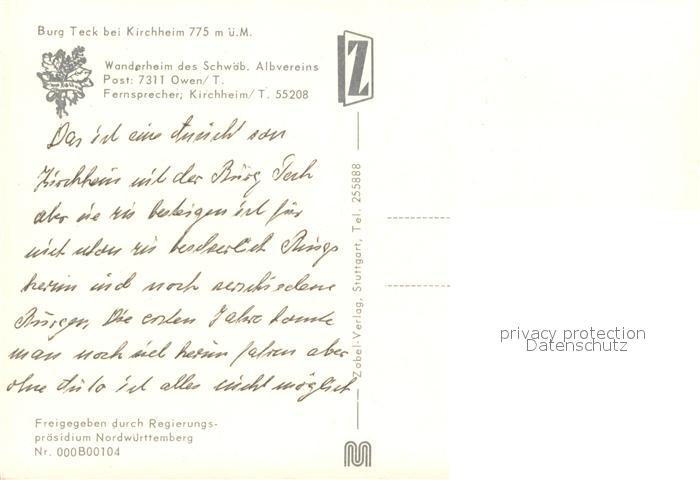 Burg Teck bei Kirchheim 775 m ü.M.
Wanderheim des Schwäb. Albvereins
Post: 7311 Owen/T.
Fernsprecher; Kirchheim/T. 55208
Z
Das ist eine Ansicht von
Kirchheim mit der Burg Teck
aber sie zu besteigen ist für
mich schon zu beschwerlich Rings
herum sind noch verschiedene
Burgen, Die ersten Jahre konnte
man noch viel herum fahren aber
ohne Auto ist alles nicht möglich
Freigegeben durch Regierungs-
präsidium Nordwürttemberg
Nr. 000B00104
Zobel-Verlag, Stuttgart, Tel. 255888
privacy protection
Datenschutz